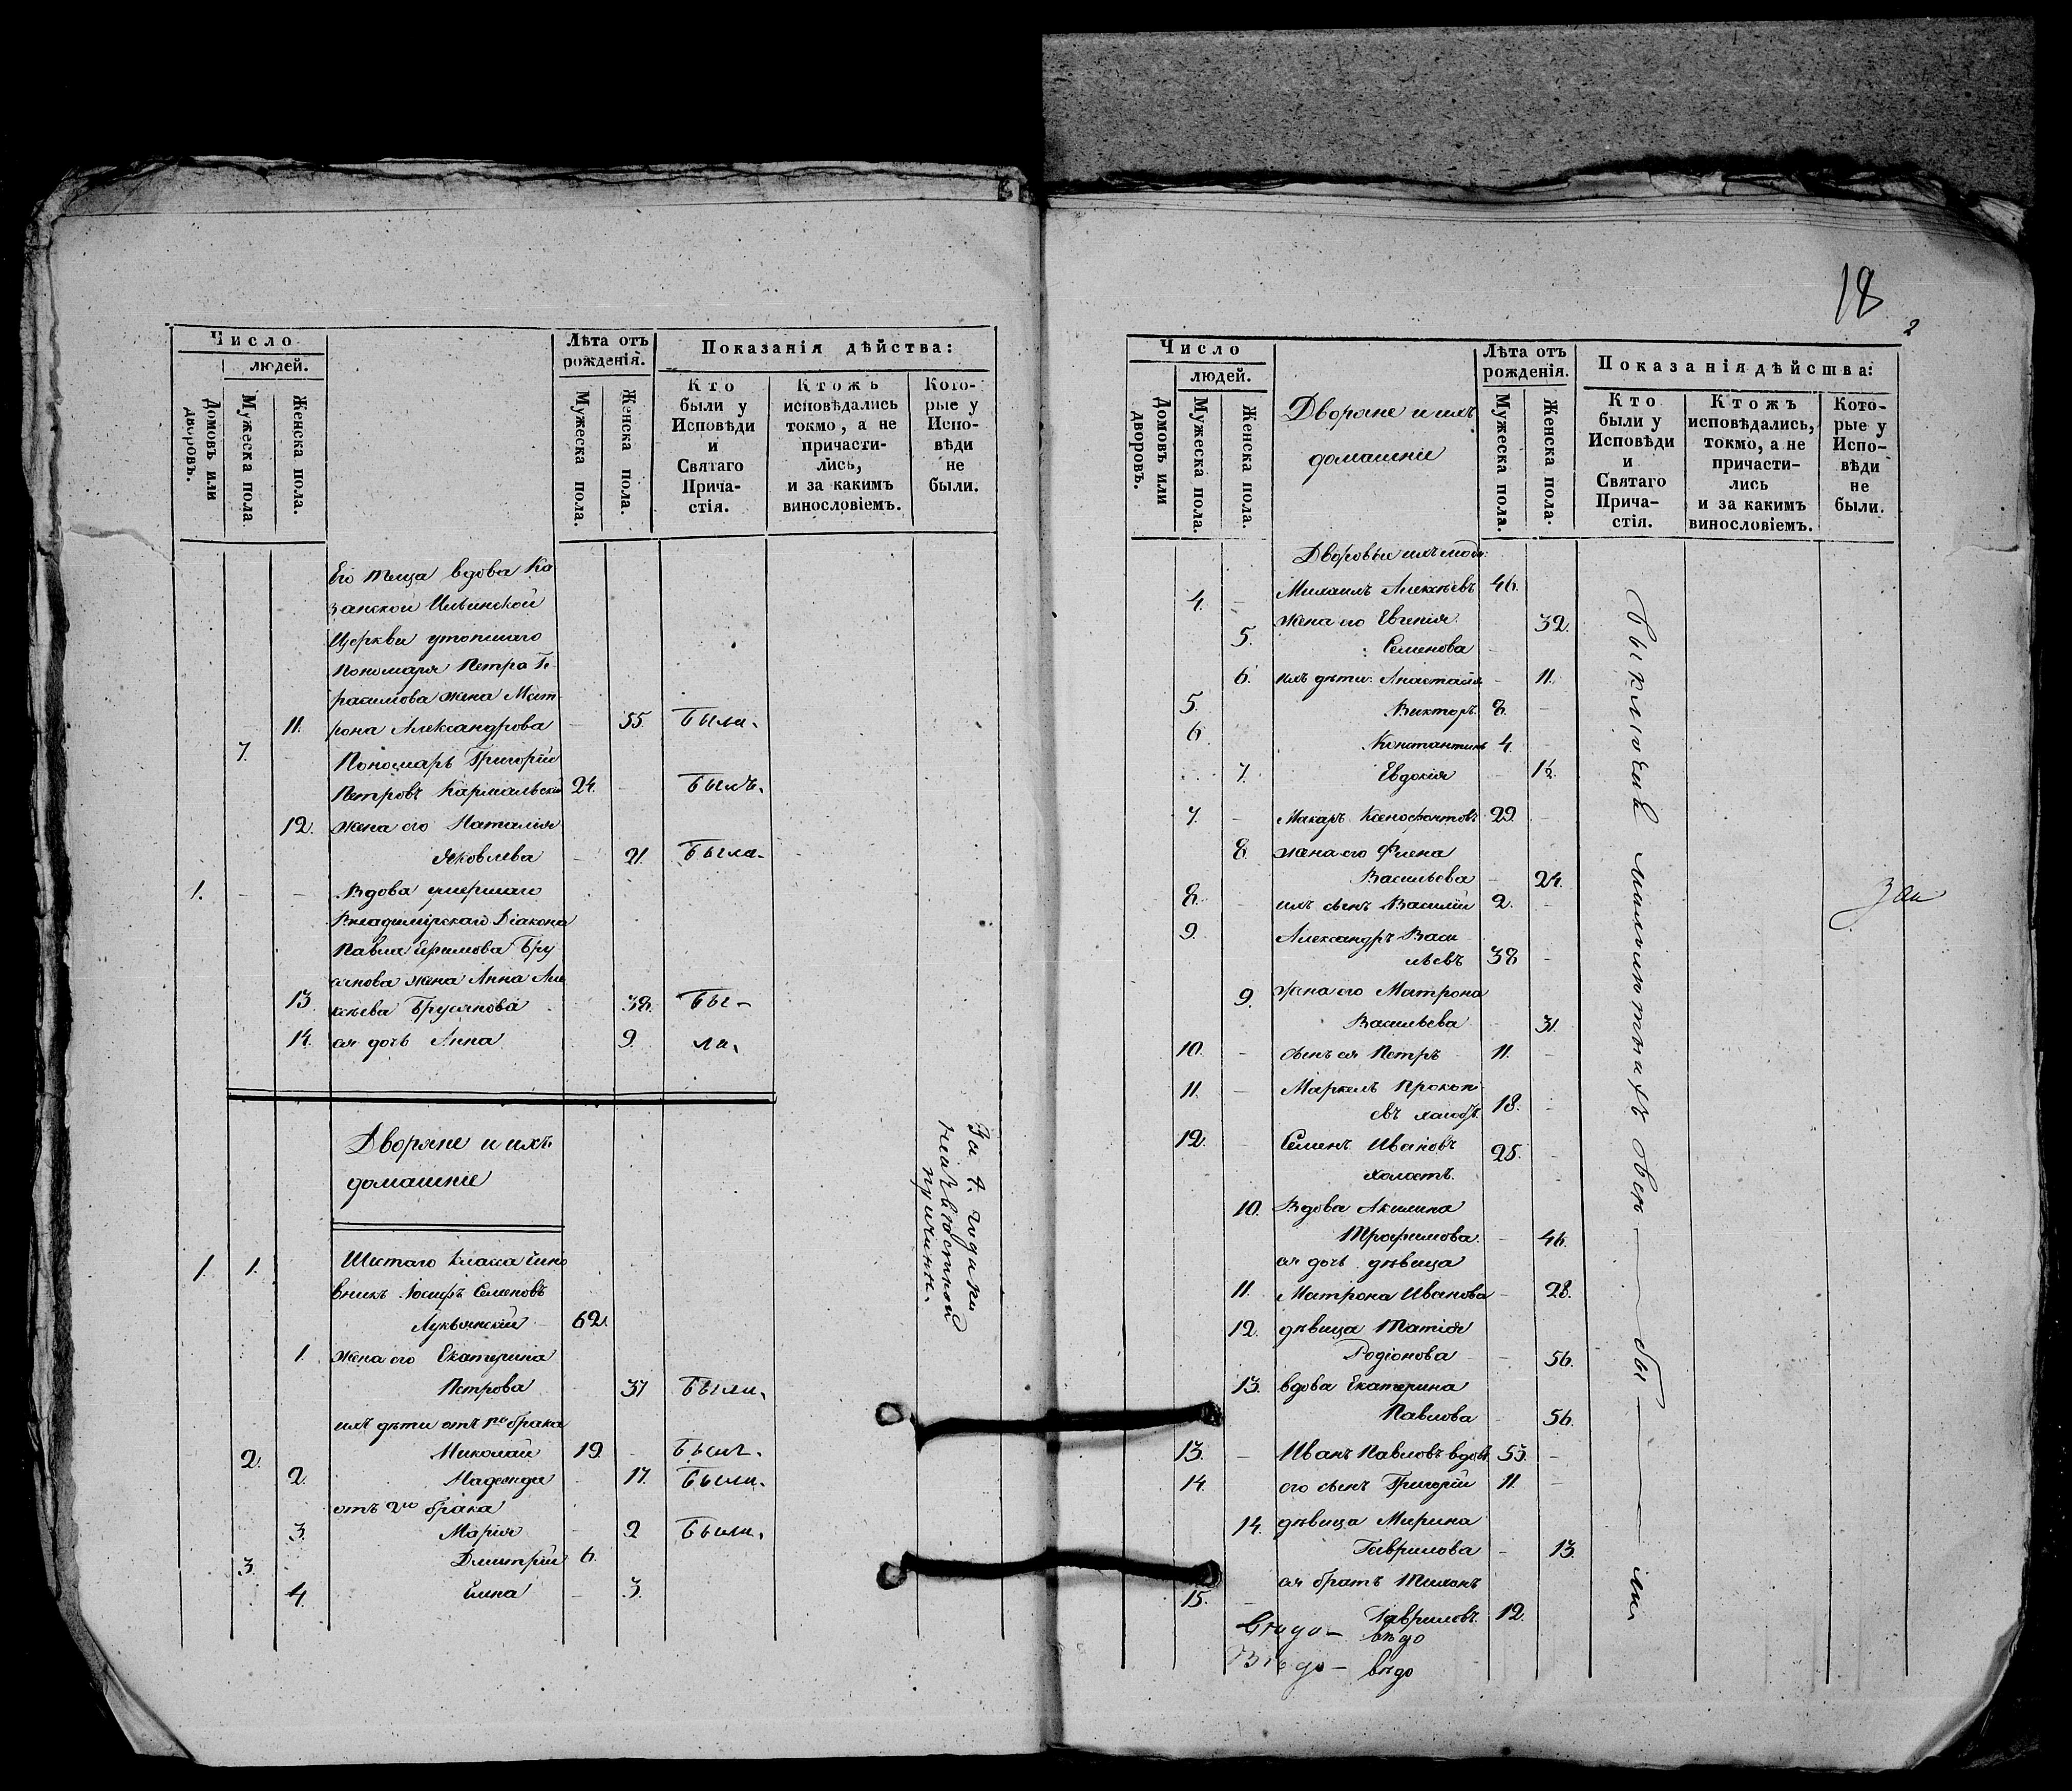 Число
людей.
Домовъ или дворовъ.
Мужеска пола
Женска пола.
Лѣта отъ рожденія.
Мужеска пола.
Женска пола.
Показанія дѣйства:
Кто были у Исповѣди и Святаго Прича-стія.
Ктожъ исповѣдались токмо, а не причасти-лись, и за какимъ винословіемъ.
Кото-рые у Испо-вѣди не были.
Его теща вдова Ка
занской Ильинской
Церкви утопшаго
Пономаря Петра Ге-
расимова жена Мат-
11. рона Александрова — 55. Была.
7. — Пономарь Григорій
Петровъ Кармальскій 24. — Былъ.
12. жена его Наталія
Яковлева — 21. Была.
1. — — Вдова умершаго
Владимірскаго Діакона
Павла Ефимова Бру
сянова жена Анна Але
13 ксѣева Брусянова 38. Бы-
14. ея дочь Анна 9. ла.
Дворяне и ихъ
домашніе
1. 1. Шестаго класса чино
вникъ Іосифъ Семеновъ
62.
1. жена его Екатерина
Петрова 37 Были.
ихъ дѣти отъ 1го брака
2. Николай 19. — Былъ.
2. Надежда — 17. Была.
отъ 2го брака
3. Марія — 9 Была.
3. Дмитрій 6.
4. Елена — 3.
За 4. годики
неизвѣстной
причины.
18
2
Число
людей.
Домовъ или дворовъ.
Мужеска пола.
Женска пола.
Дворяне и ихъ
домашніе
Лѣта отъ рожденія.
Мужеска пола.
Женска пола.
Показанія дѣйства:
Кто были у Исповѣди и Святаго Прича-стія.
Ктожъ исповѣдались, токмо, а не причасти-лись и за какимъ винословіемъ.
Кото-рые у Испо-вѣди не были.
Дворовые ихъ люди:
4. — Михаилъ Алексѣевъ 46.
5. жена его Евгенія 32.
Семенова —
6. ихъ дѣти: Анастасія — 11.
5. Викторъ 8. —
6 Константинъ 4. —
7. Евдокія —
7. — Макаръ Ксенофонтовъ 29. —
8. жена его Фіена
Васильева — 24.
8. — ихъ сынъ Василій 2. —
9. Александръ Васи
льевъ 38 —
9. жена его Матрона
Васильева — 31.
10. — сынъ ея Петръ 11. —
11. — Маркелъ Прокопі
евъ холостъ. 18. —
12. Семенъ Ивановъ 25. —
холостъ.
10. Вдова Акилина
Трофимова. — 46.
ея дочь дѣвица
11. Матрона Иванова — 28.
12. дѣвица
Родіонова — 56.
13. вдова Екатерина
Павлова — 56.
13. — Иванъ Павловъ вдовъ 53. —
14. его сынъ Григорій 11. —
14. дѣвица Марина
Гаврилова — 13.
15. — ея братъ Тихонъ
Гавриловъ. 12.
вѣдо
вѣдо
всѣ — бы — ли